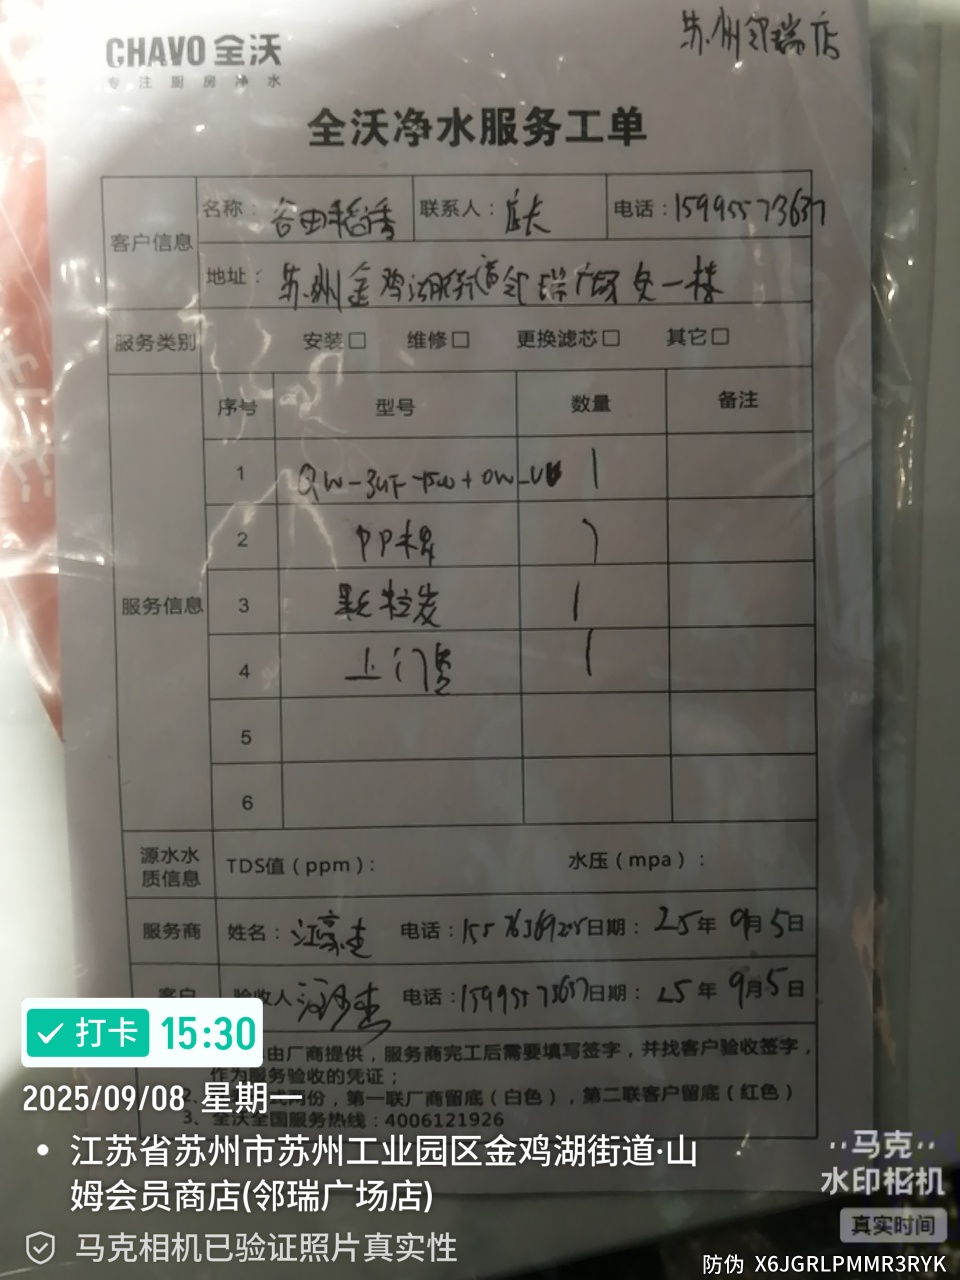 苏州邻瑞店
CHAVO 全沃
专注厨房净水
全沃净水服务工单
客户信息 名称：谷田稻香 联系人：店长 电话：15995573637
地址：苏州金鸡湖街道邻瑞广场负一楼
服务类别 安装□ 维修□ 更换滤芯□ 其它□
服务信息 序号 型号 数量 备注
1 1
2 PP棉 1
3 颗粒炭 1
4 上门费 1
5
6
源水水质信息 TDS值（ppm）： 水压（mpa）：
服务商 姓名： 电话： 日期：25年9月5日
客户 验收人 电话：15995573637 日期：25年9月5日
由厂商提供，服务商完工后需要填写签字，并找客户验收签字，
作为服务验收的凭证；
份，第一联厂商留底（白色），第二联客户留底（红色）
3、全沃全国服务热线：4006121926
打卡 15:30
2025/09/08 星期一
江苏省苏州市苏州工业园区金鸡湖街道·山
姆会员商店(邻瑞广场店)
马克相机已验证照片真实性
马克
水印相机
真实时间
防伪 X6JGRLPMMR3RYK